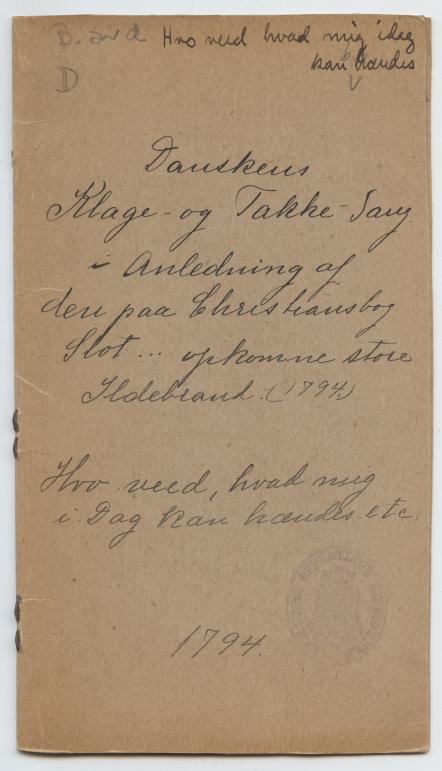 Hvo veed hvad mig idag
kan hændes
D
Danskens
Klage- og Takke-Sang
i Anledning af
den paa Christiansbog
Slot... opkomne store
Ildebrand. (1794)
Hvo veed, hvad mig
i Dag kan hændes etc.
1794.